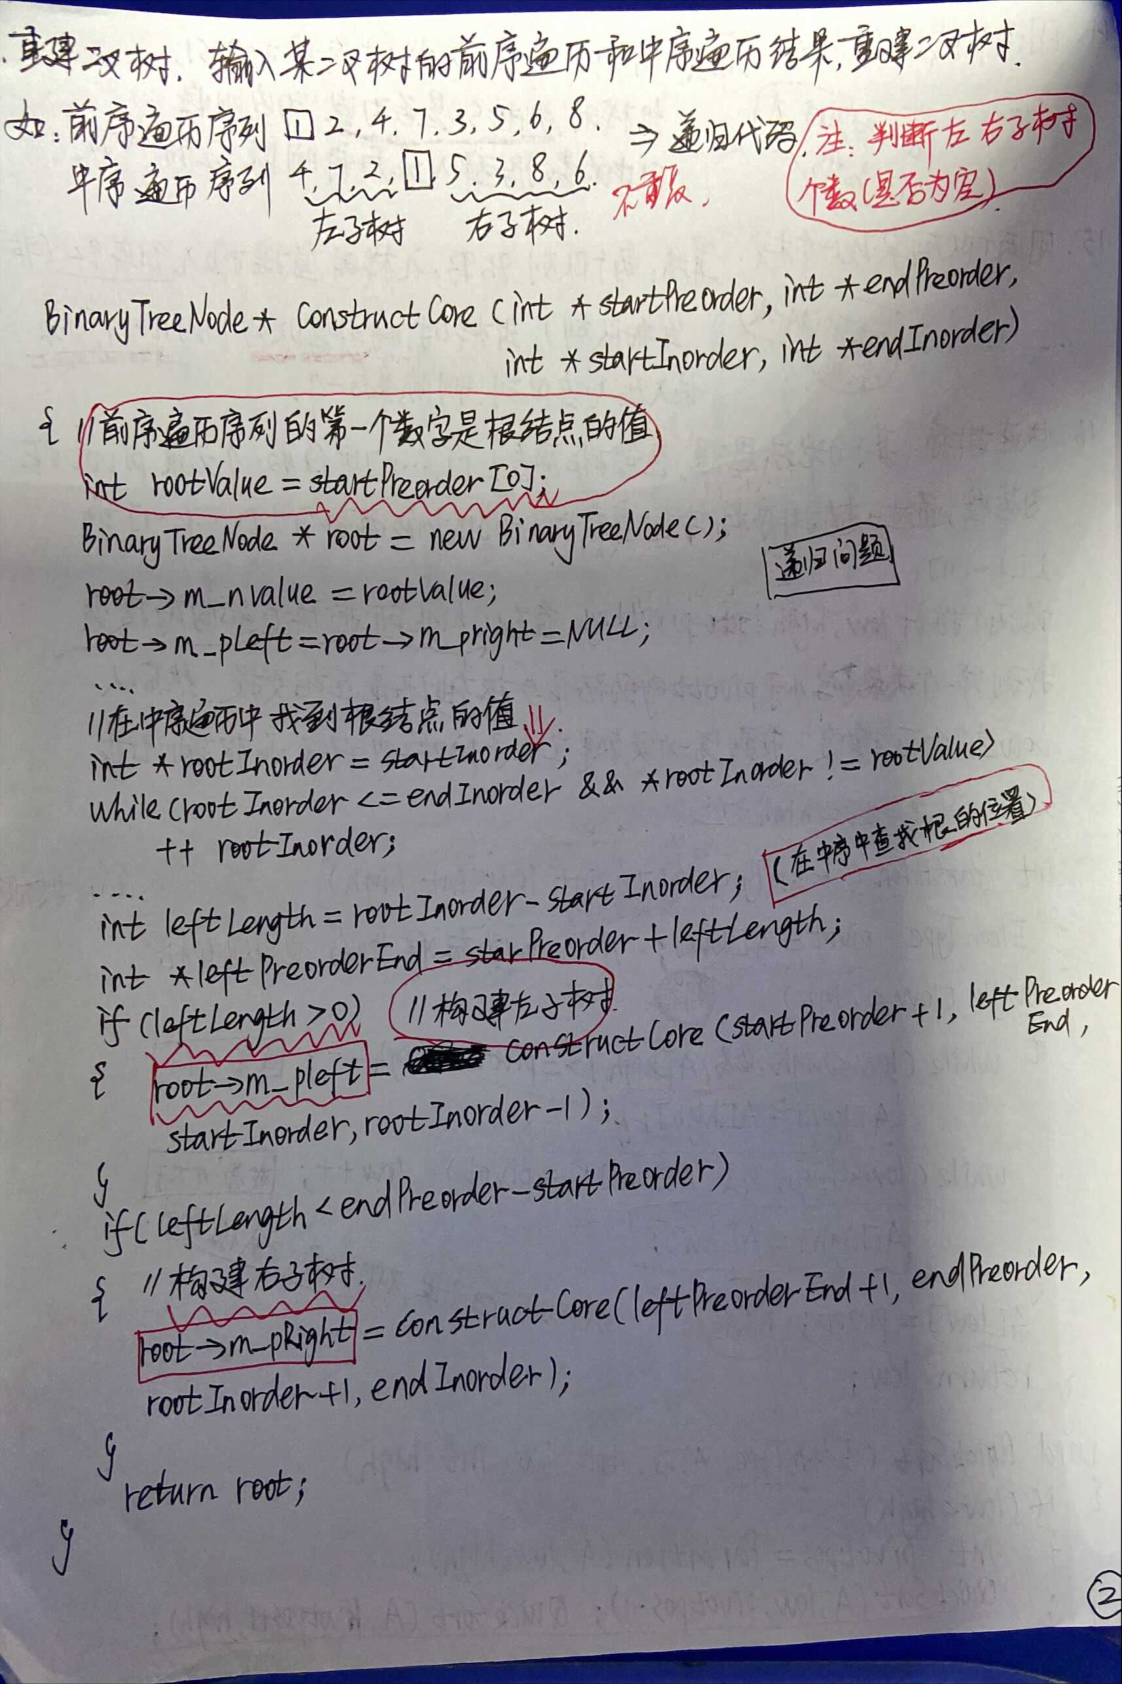 重建二叉树. 输入某二叉树的前序遍历和中序遍历结果,重建二叉树.
如:前序遍历序列 1 2, 4, 7, 3, 5, 6, 8.
中序遍历序列 4, 7, 2, 1, 5, 3, 8, 6.
左子树 右子树.
⇒ 递归代码.
不重复,
注: 判断左右子树
个数(是否为空)
BinaryTreeNode* ConstructCore (int * startPreorder, int * endPreorder,
int * startInorder, int *endInorder)
{ //前序遍历序列的第一个数字是根结点的值
int rootValue = startPreorder[0];
BinaryTreeNode * root = new BinaryTreeNode();
递归问题
root→m_nvalue = rootValue;
root→m_pLeft=root→m_pright=NULL;
....
//在中序遍历中找到根结点的值
int *rootInorder = startInorder;
while (rootInorder <= endInorder && *rootInorder != rootValue)
++ rootInorder;
(在中序中查找根的位置)
....
int leftLength = rootInorder-startInorder;
int *leftPreorderEnd = starPreorder+leftLength;
if (leftLength > 0) //构建左子树.
{ root→m_pleft = constructCore (startPreorder+1, leftPreorder
End,
startInorder, rootInorder-1);
}
if(leftLength < endPreorder-startPreorder)
{ //构建右子树.
root→m_pRight = constructCore(leftPreorderEnd+1, endPreorder,
rootInorder+1, endInorder);
}
return root;
}
2